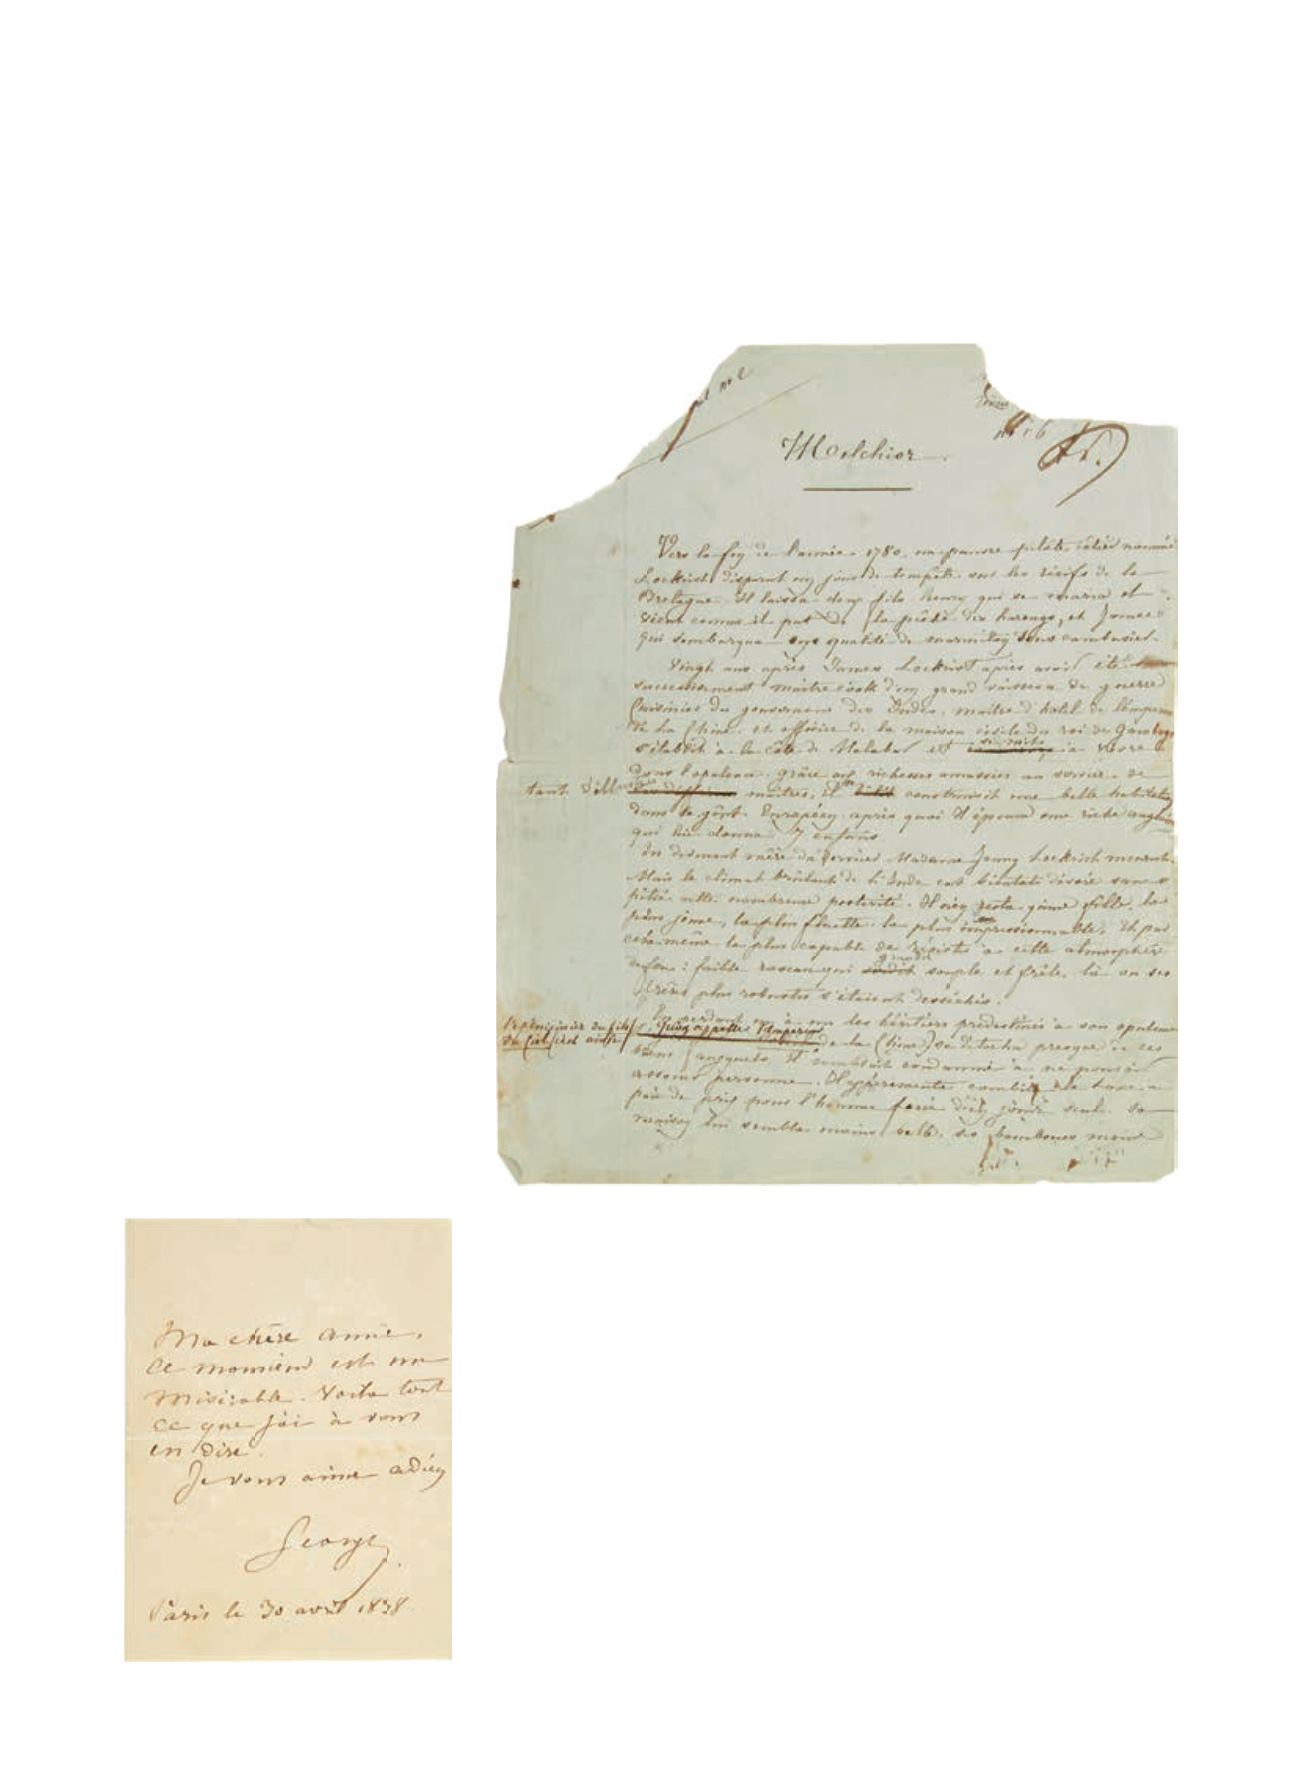 Melchior.
Vers la fin de l'année 1780, un pauvre pilote côtier nommé
Lockrist disparut un jour de tempête sous les récifs de la
Bretagne. Il laissa deux fils, henry qui se maria et
vécut comme il put de la pêche des harengs, et James
qui s'embarqua en qualité de marmiton sous cambusier.
Vingt ans après James Lockrist après avoir été
successivement maître cook d'un grand vaisseau de guerre
Cuisinier du gouverneur des Indes, maître d'hôtel de l'empereur
de la Chine, et officier de la maison civile du roi de
s'établit à la côte de Malabar et se mit à vivre
dans l'opulence grâce aux richesses amassées au service de
tant d'illustres maîtres, il construisit une belle habitation
dans le goût Européen après quoi il épousa une riche anglaise
qui lui donna 7 enfans.
En donnant naissance au dernier Madame Jenny Lockrist mourut.
Mais le climat brûlant de l'Inde eut bientôt dévoré sans
pitié cette nombreuse postérité. Il n'en resta qu'une fille, la
plus jeune, la plus fluette, la plus impressionnable, et par
cela même la plus capable de résister à cette atmosphère
de feu : faible roseau qui grandit souple et frêle là où ses
frères plus robustes s'étaient desséchés.
En perdant un à un les héritiers prédestinés à son opulence
de la Chine) se détacha presque de ces
biens auxquels il semblait condamné à ne pouvoir
associer personne. Il expérimenta combien le luxe a
peu de prix pour l'homme forcé d'en jouir seul. Sa
maison lui sembla moins belle, ses bambous moins
Ma chère amie,
ce monsieur est un
misérable. Voila tout
ce que j'ai à vous
en dire.
Je vous aime adieu
George
Paris le 30 avril 1838